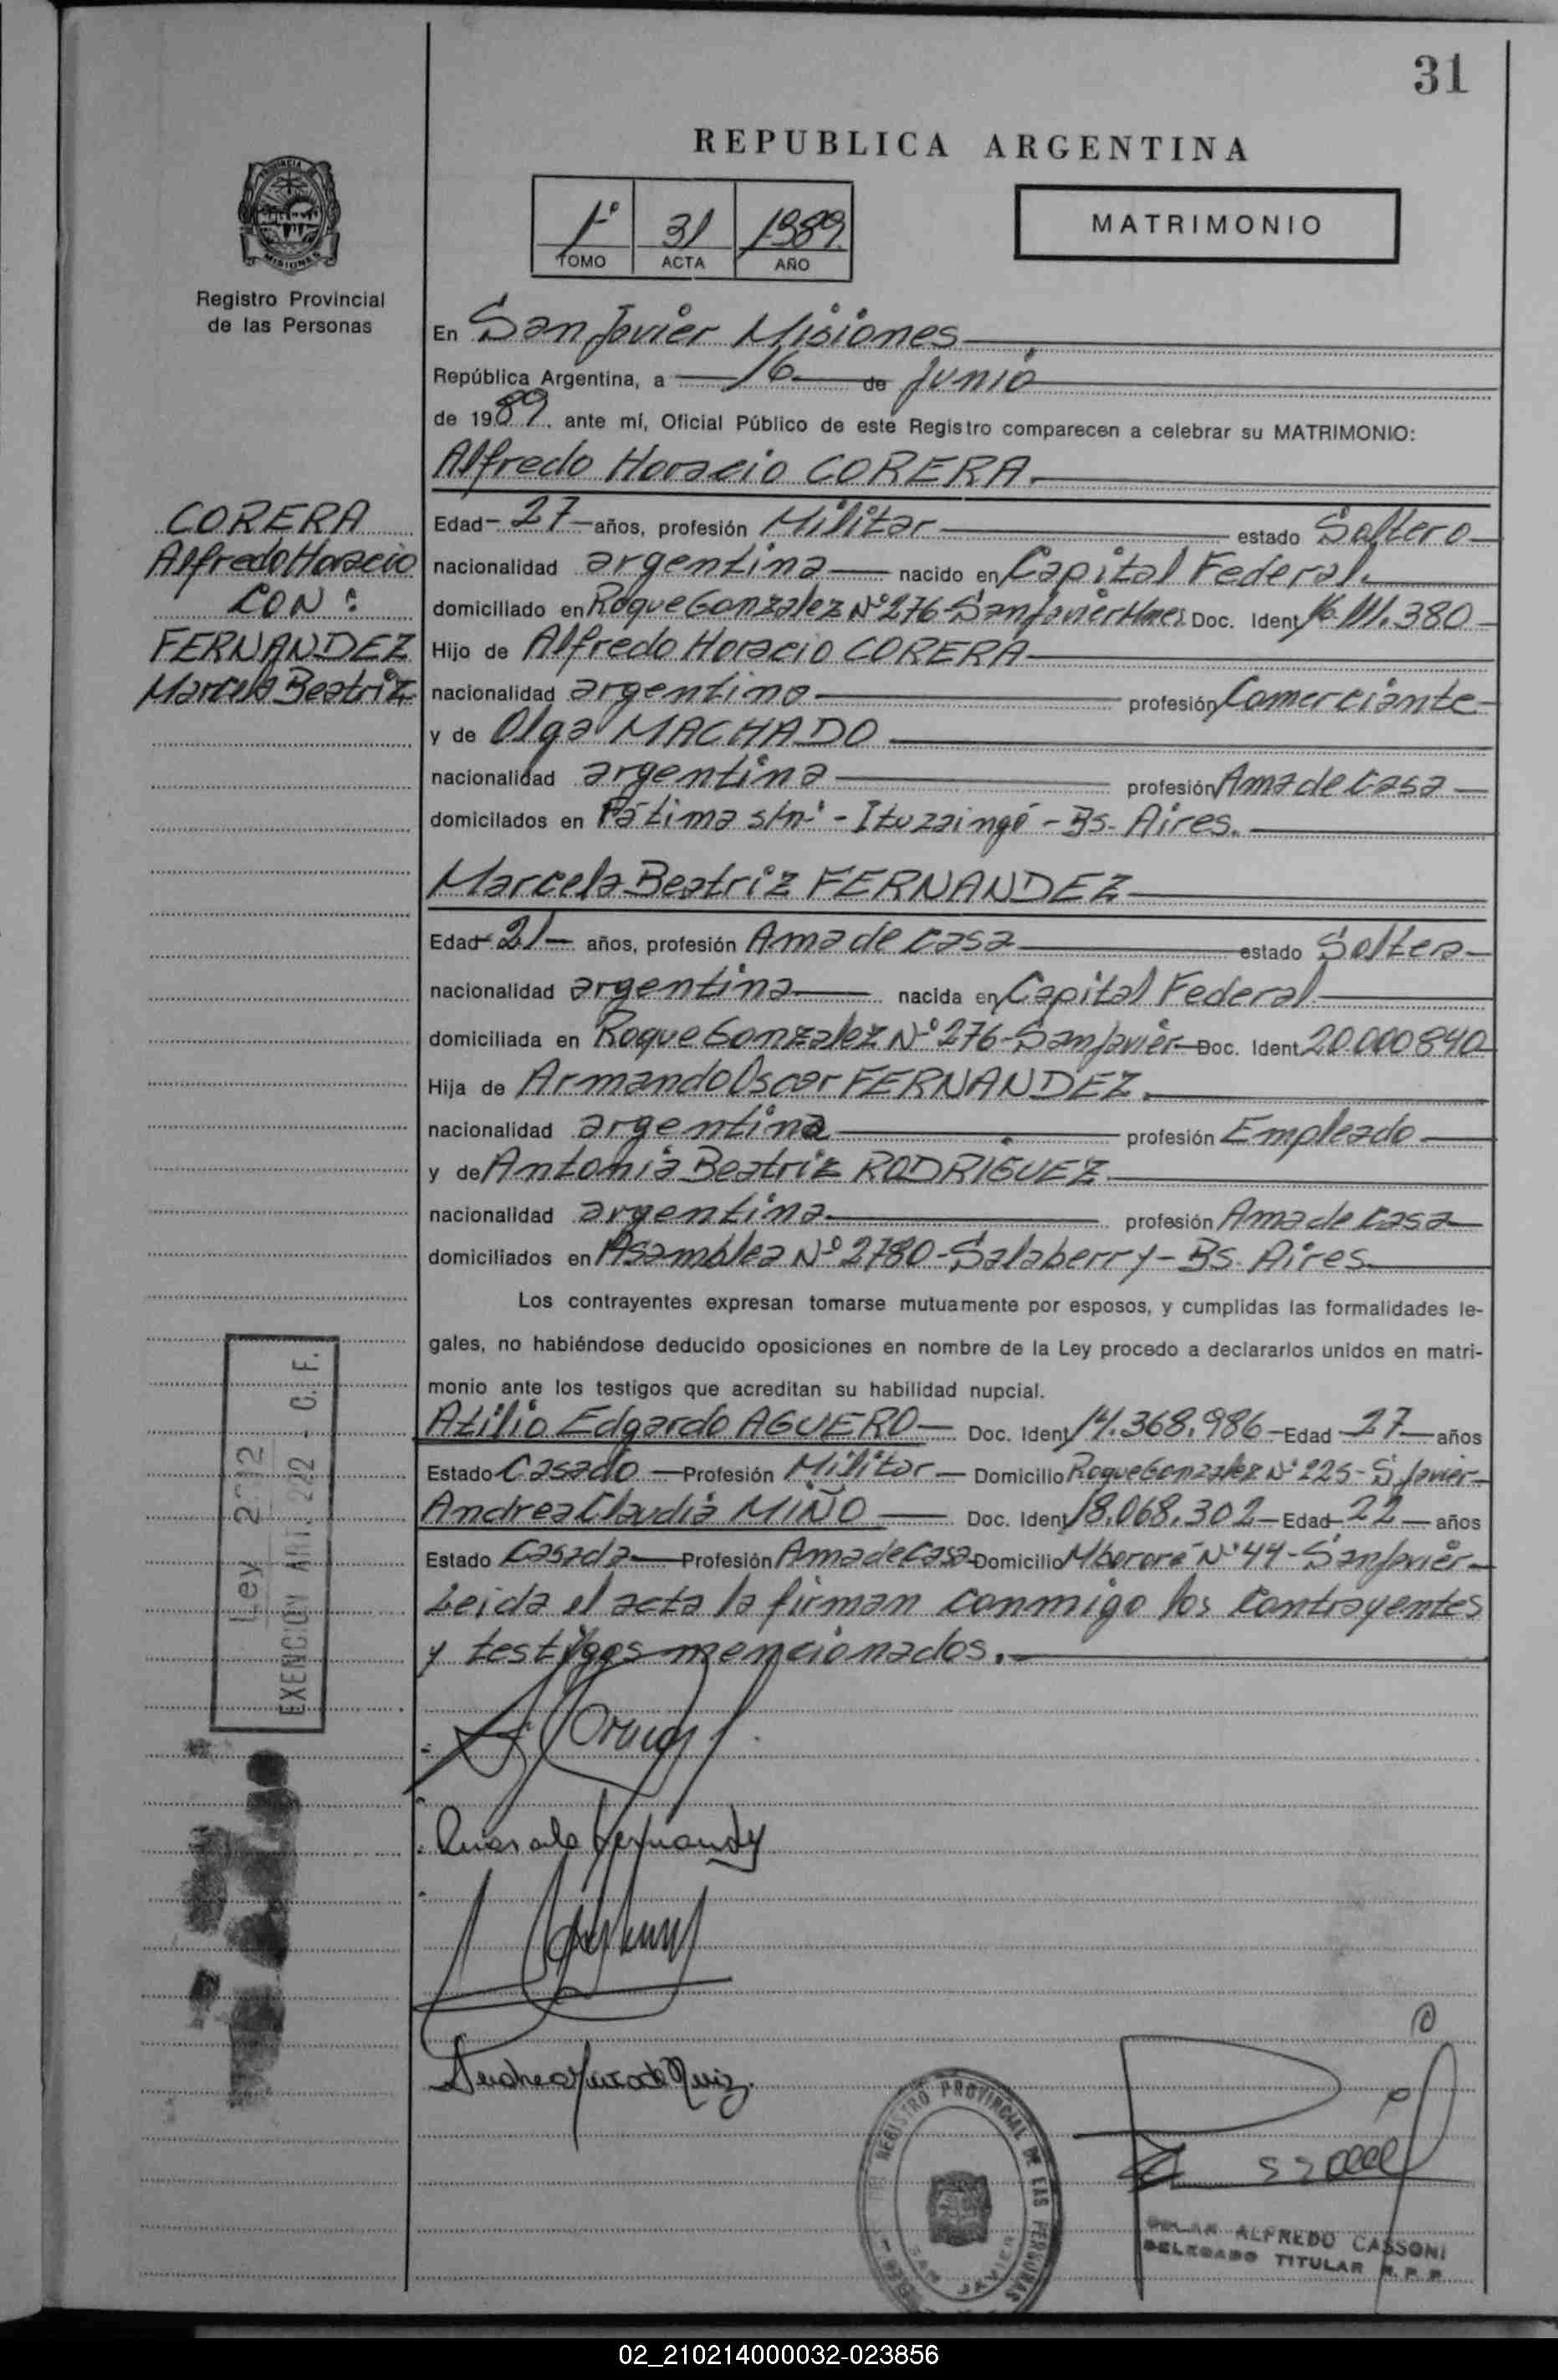 31
REPUBLICA ARGENTINA
1º 31 1989
TOMO ACTA AÑO
MATRIMONIO
PROVINCIA
MISIONES
Registro Provincial
de las Personas
En San Javier Misiones
República Argentina, a 16 de Junio
de 1989. ante mí, Oficial Público de este Registro comparecen a celebrar su MATRIMONIO:
Alfredo Horacio CORERA.
CORERA
Alfredo Horacio
CON:
FERNANDEZ
Marcela Beatriz
Edad 27 años, profesión Militar estado Soltero
nacionalidad argentina nacido en Capital Federal.
domiciliado en Roque Gonzalez Nº 276-San Javier Mnes Doc. Ident 16.111.380
Hijo de Alfredo Horacio CORERA
nacionalidad argentino profesión Comerciante
y de Olga MACHADO
nacionalidad argentina profesión Ama de casa
domicilados en Fátima s/nº - Ituzaingó - Bs. Aires.
Marcela Beatriz FERNANDEZ
Edad 21 años, profesión Ama de casa estado Soltera
nacionalidad argentina nacida en Capital Federal
domiciliada en Roque Gonzalez Nº 276-San Javier Doc. Ident 20.000840
Hija de Armando Oscar FERNANDEZ.
nacionalidad argentina profesión Empleado
y de Antonia Beatriz RODRIGUEZ.
nacionalidad argentina profesión Ama de casa
domiciliados en Asamblea Nº 2780-Salaberry-Bs. Aires.
Los contrayentes expresan tomarse mutuamente por esposos, y cumplidas las formalidades le-
gales, no habiéndose deducido oposiciones en nombre de la Ley procedo a declararlos unidos en matri-
monio ante los testigos que acreditan su habilidad nupcial.
Atilio Edgardo AGUERO Doc. Ident 14.368.986 Edad 27 años
Estado Casado Profesión Militar Domicilio Roque Gonzalez Nº 225-S Javier
Andrea Claudia MIÑO Doc. Ident 18.068.302 Edad 22 años
Estado Casada Profesión Ama de Casa Domicilio Mbororé Nº 44-San Javier
Leida el acta la firman conmigo los Contrayentes
y testigos mencionados.
Ley
EXENCION ART. 222 - C. F.
REGISTRO PROVINCIAL DE LAS PERSONAS
SAN JAVIER
ALFREDO CASSONI
DELEGADO TITULAR R. P. P.
02_210214000032-023856